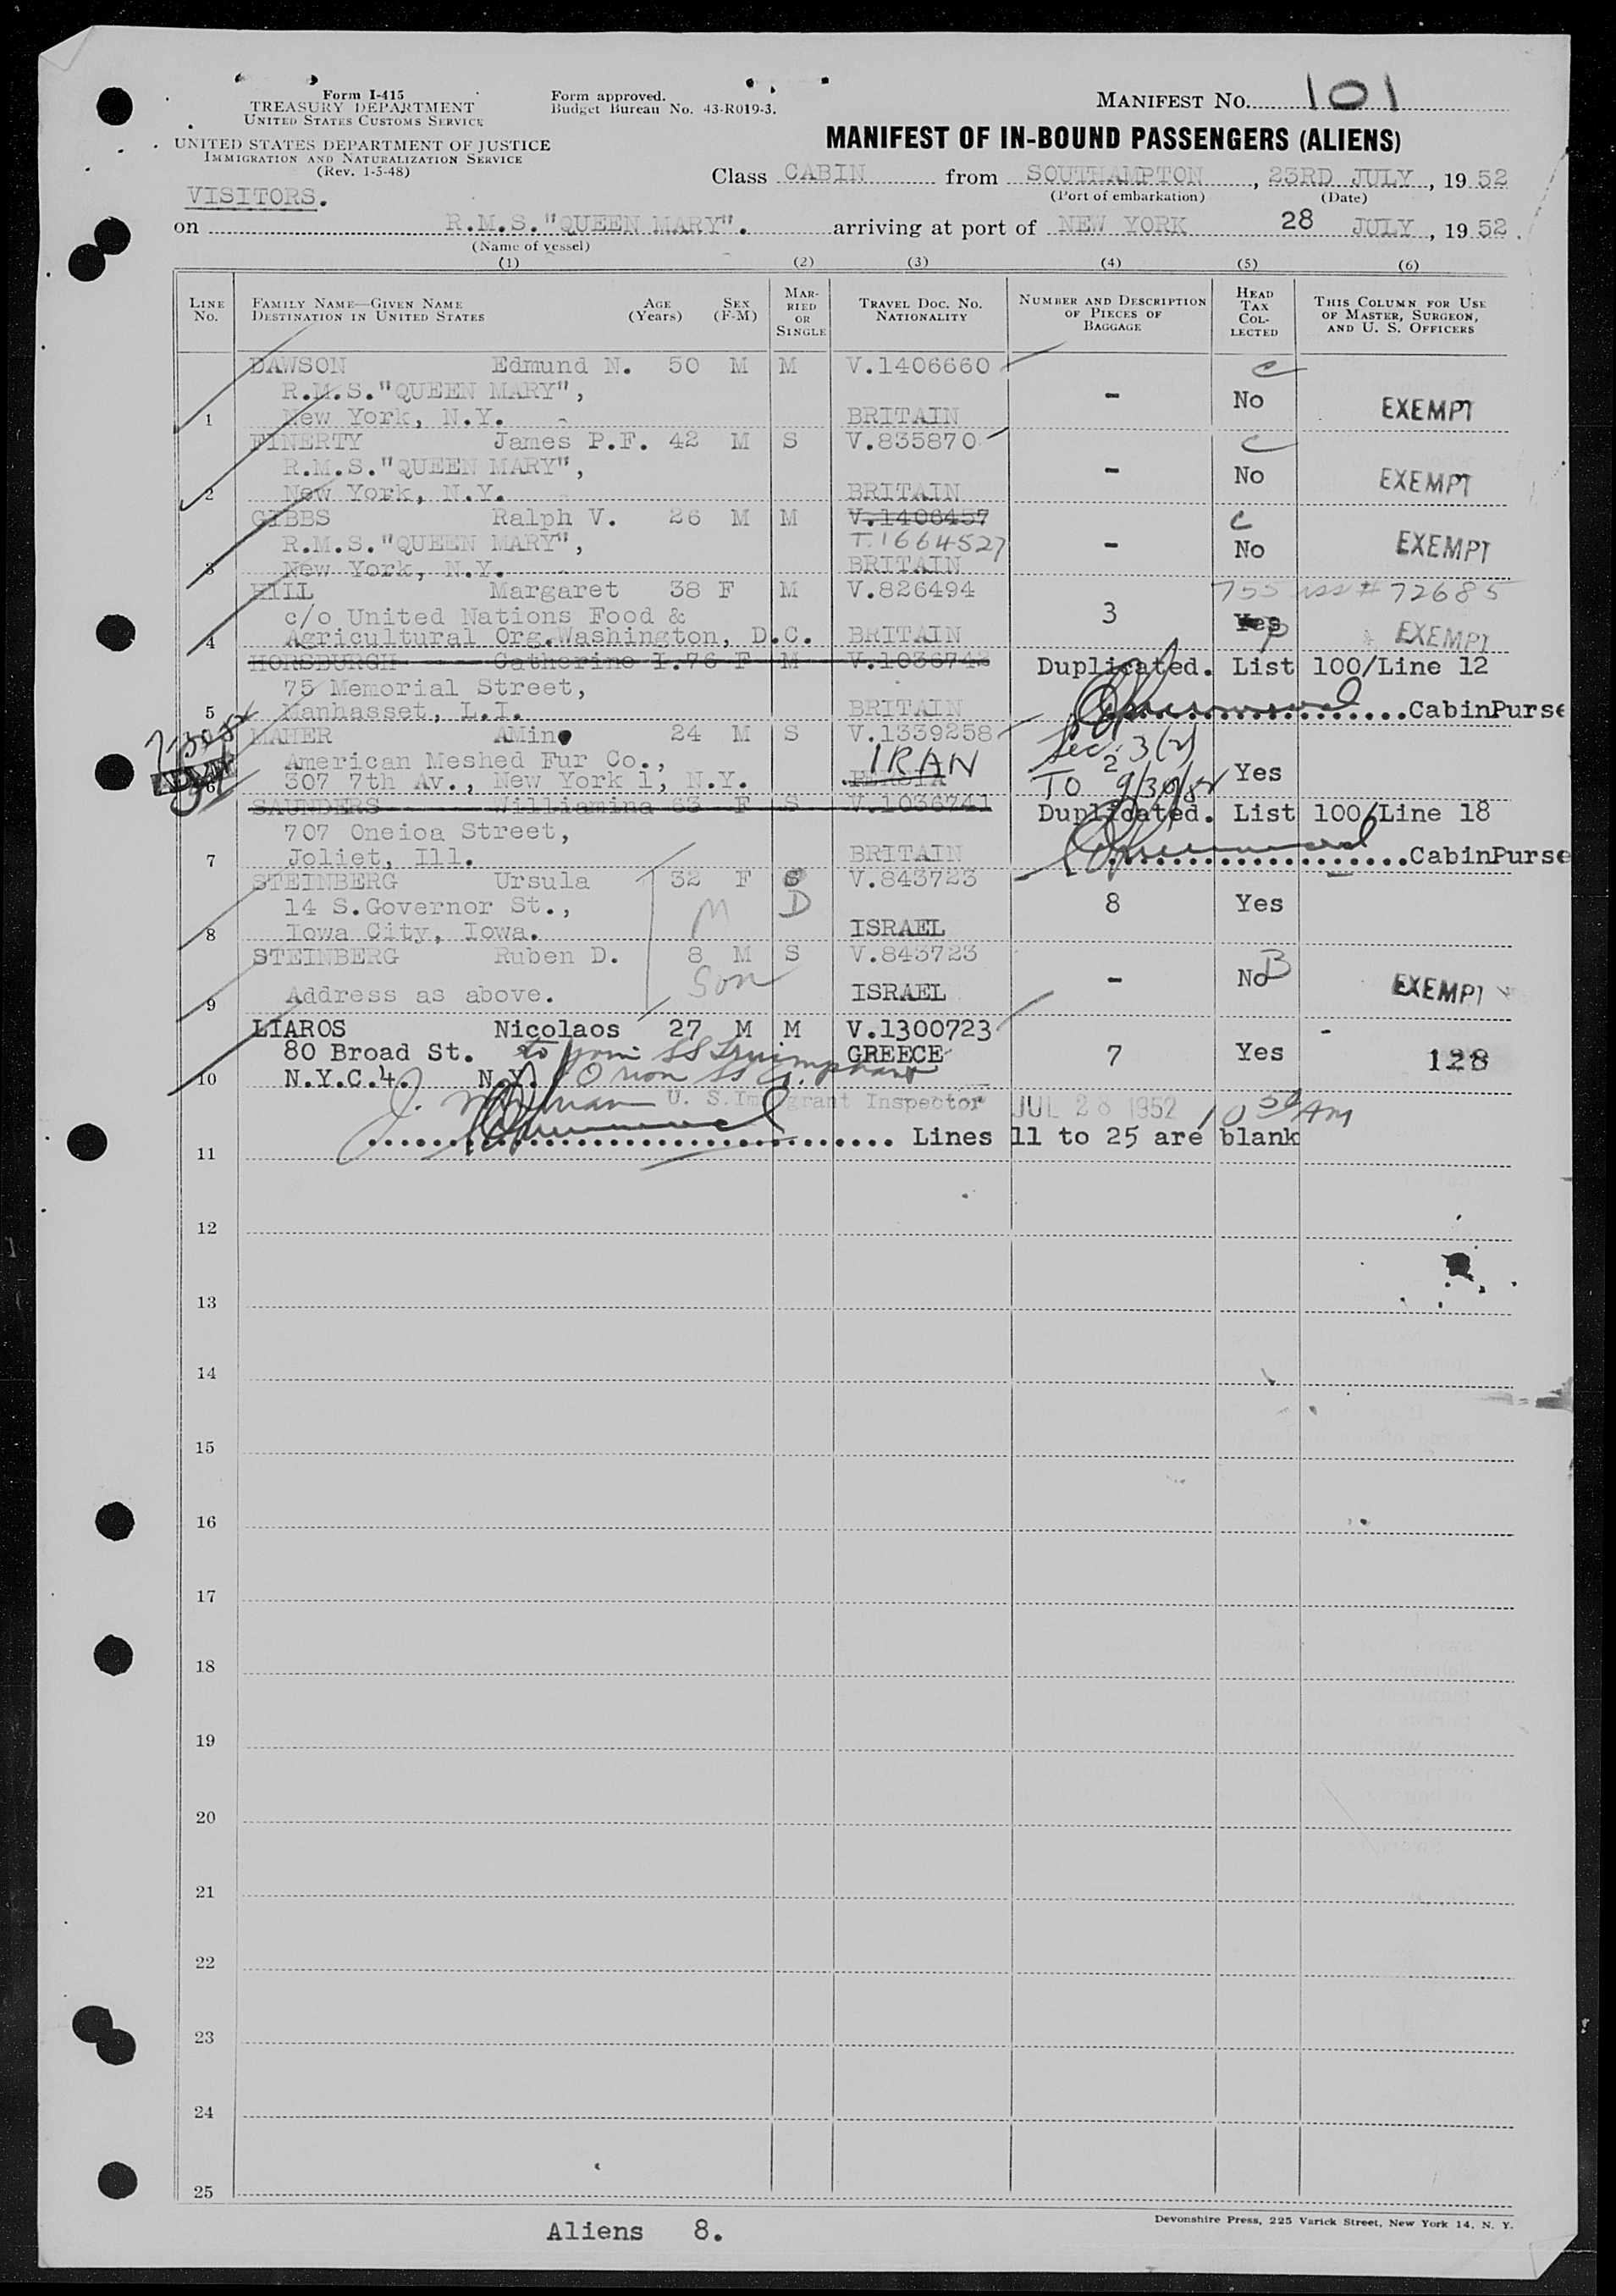 Form I-415
TREASURY DEPARTMENT
UNITED STATES CUSTOMS SERVICE
UNITED STATES DEPARTMENT OF JUSTICE
IMMIGRATION AND NATURALIZATION SERVICE
(Rev. 1-5-48)
Form approved.
Budget Bureau No. 43-R019-3.
MANIFEST No. 101
MANIFEST OF IN-BOUND PASSENGERS (ALIENS)
Class CABIN from SOUTHAMPTON, 23RD JULY, 19 52
(Port of embarkation) (Date)
VISITORS.
on R.M.S."QUEEN MARY". arriving at port of NEW YORK 28 JULY, 19 52.
(Name of vessel)
(1) (2) (3) (4) (5) (6)
LINE No. FAMILY NAME—GIVEN NAME DESTINATION IN UNITED STATES AGE (Years) SEX (F-M) MARRIED OR SINGLE TRAVEL DOC. NO. NATIONALITY NUMBER AND DESCRIPTION OF PIECES OF BAGGAGE HEAD TAX COLLECTED THIS COLUMN FOR USE OF MASTER, SURGEON, AND U. S. OFFICERS
DAWSON Edmund N. 50 M M V.1406660 C
R.M.S."QUEEN MARY", - No EXEMPT
1 New York, N.Y. BRITAIN
FINERTY James P.F. 42 M S V.835870 C
R.M.S."QUEEN MARY", - No EXEMPT
2 New York, N.Y. BRITAIN
GIBBS Ralph V. 26 M M V.1406457 C
R.M.S."QUEEN MARY", T.1664527 - No EXEMPT
3 New York, N.Y. BRITAIN
HILL Margaret 38 F M V.826494 755 # 72685
c/o United Nations Food & 3 Yes
4 Agricultural Org.Washington, D.C. BRITAIN EXEMPT
HORSBURGH Catherine I. 76 F M V.1036743 Duplicated. List 100/Line 12
75 Memorial Street,
5 Manhasset, L.I. BRITAIN CabinPurse
MAHER AMin 24 M S V.1339258 Sec. 3(2)
American Meshed Fur Co., IRAN 2 Yes
6 307 7th Av., New York 1, N.Y. PERSIA TO 9/30/52
SAUNDERS Williamina 63 F S V.1036741 Duplicated. List 100/Line 18
707 Oneioa Street,
7 Joliet, Ill. BRITAIN CabinPurse
STEINBERG Ursula 32 F S V.843723
14 S.Governor St., M D 8 Yes
8 Iowa City, Iowa. ISRAEL
STEINBERG Ruben D. 8 M S V.843723
Son - No B EXEMPT
9 Address as above. ISRAEL
LIAROS Nicolaos 27 M M V.1300723 -
80 Broad St. to join SS GREECE 7 Yes 128
10 N.Y.C.4. N.Y.
U. S. Immigrant Inspector JUL 28 1952 10 30 AM
Lines 11 to 25 are blank
11
12
13
14
15
16
17
18
19
20
21
22
23
24
25
Devonshire Press, 225 Varick Street, New York 14, N. Y.
Aliens 8.